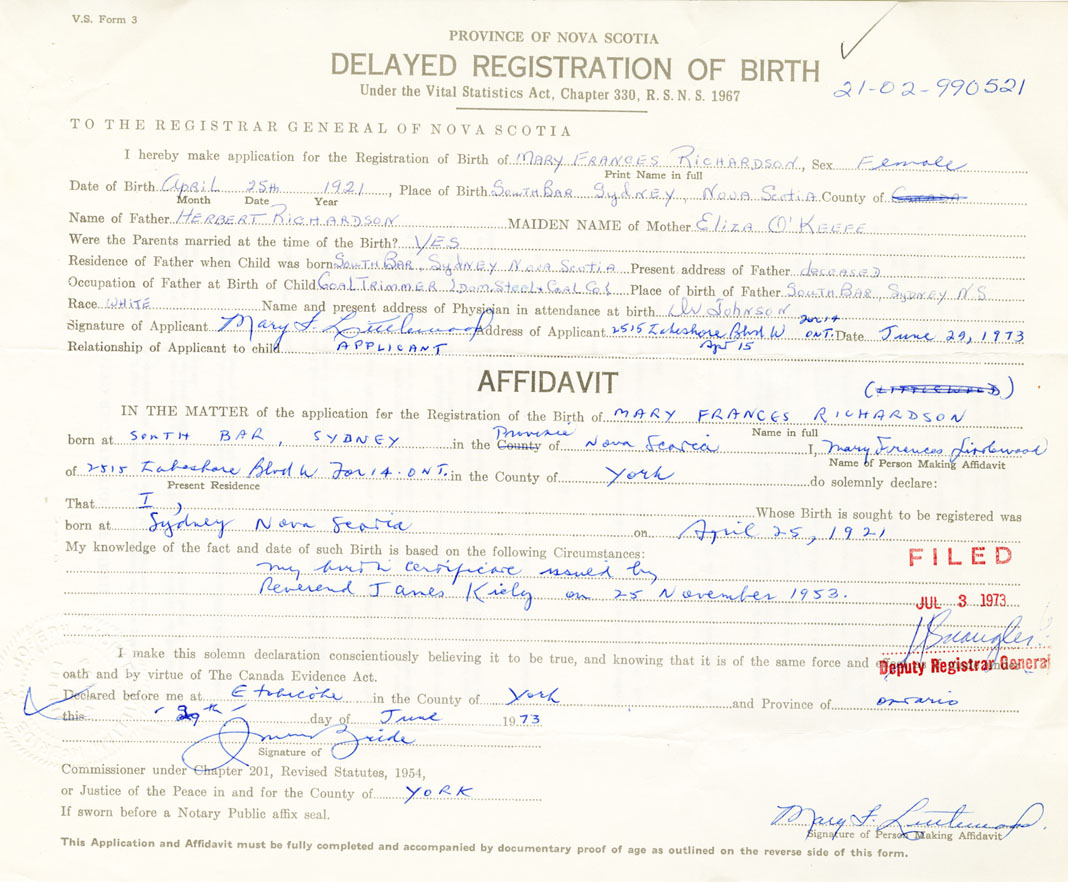 V.S. Form 3
PROVINCE OF NOVA SCOTIA
DELAYED REGISTRATION OF BIRTH
Under the Vital Statistics Act, Chapter 330, R.S.N.S. 1967
21-02-990521
TO THE REGISTRAR GENERAL OF NOVA SCOTIA
I hereby make application for the Registration of Birth of MARY FRANCES RICHARDSON, Sex Female
Print Name in full
Date of Birth April 25th 1921, Place of Birth SOUTH BAR SYDNEY, NOVA SCOTIA County of CANADA
Month Date Year
Name of Father HERBERT RICHARDSON MAIDEN NAME of Mother ELIZA O'KEEFE
Were the Parents married at the time of the Birth? YES
Residence of Father when Child was born SOUTH BAR, SYDNEY NOVA SCOTIA Present address of Father deceased
Occupation of Father at Birth of Child COAL TRIMMER Dom. Steel & Coal Co. Place of birth of Father SOUTH BAR, SYDNEY N.S
Race WHITE Name and present address of Physician in attendance at birth Dr JOHNSON
Signature of Applicant Mary F. Littlewood Address of Applicant 2515 Lakeshore Blvd W Tor 14 ONT. Date June 29, 1973
Apt 15
Relationship of Applicant to child APPLICANT
AFFIDAVIT
(LITTLEWOOD)
IN THE MATTER of the application for the Registration of the Birth of MARY FRANCES RICHARDSON
Name in full
born at SOUTH BAR, SYDNEY in the County Province of Nova Scotia I, Mary Frances Littlewood
Name of Person Making Affidavit
of 2515 Lakeshore Blvd W Tor 14. ONT. in the County of York do solemnly declare:
Present Residence
That I, Whose Birth is sought to be registered was
born at Sydney Nova Scotia on April 25, 1921
My knowledge of the fact and date of such Birth is based on the following Circumstances:
my birth certificate issued by
Reverend James Kiely on 25 November 1953.
FILED
JUL 3 1973
Deputy Registrar General
I make this solemn declaration conscientiously believing it to be true, and knowing that it is of the same force and
oath and by virtue of The Canada Evidence Act.
Declared before me at Etobicoke in the County of York and Province of Ontario
this 29th day of June 1973
Signature of
Commissioner under Chapter 201, Revised Statutes, 1954,
or Justice of the Peace in and for the County of YORK
If sworn before a Notary Public affix seal.
Mary F. Littlewood.
Signature of Person Making Affidavit
This Application and Affidavit must be fully completed and accompanied by documentary proof of age as outlined on the reverse side of this form.